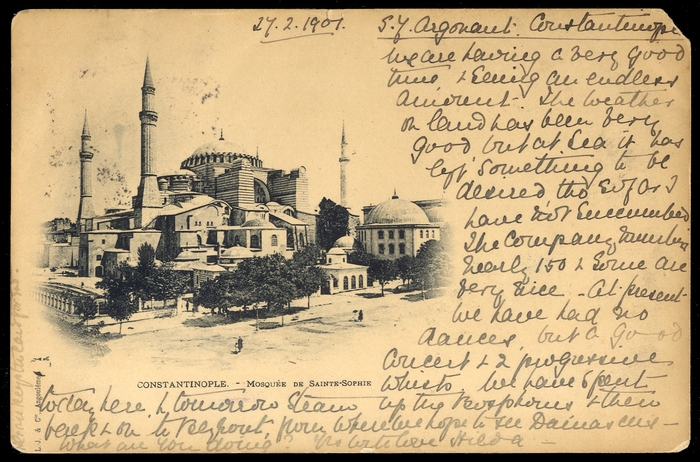 27.2.1901.
S.Y. Argonaut. Constantinople
We are having a very good
time & seeing an endless
amount. The weather
on land has been very
good but at sea it has
left something to be
desired tho so far I
have not succumbed
The Company number
nearly 150 & some are
very nice - At present
we have had no
dances, but a good
Concert & 2 progressive
whists. We have spent
today here, & tomorrow steam up the Bosphorus & then
back & on to Beyrout, from where we hope to see Damascus -
What are you doing? With love Hilda -
CONSTANTINOPLE. - MOSQUÉE DE SAINTE-SOPHIE
L. J. & Cie, Angoulême